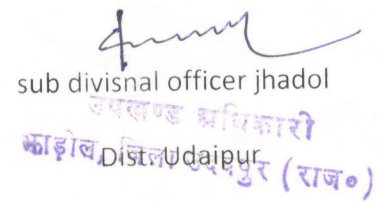 sub divisnal officer jhadol
उपखण्ड अधिकारी
Dist. Udaipur
झाड़ोल, जिला उदयपुर (राज०)